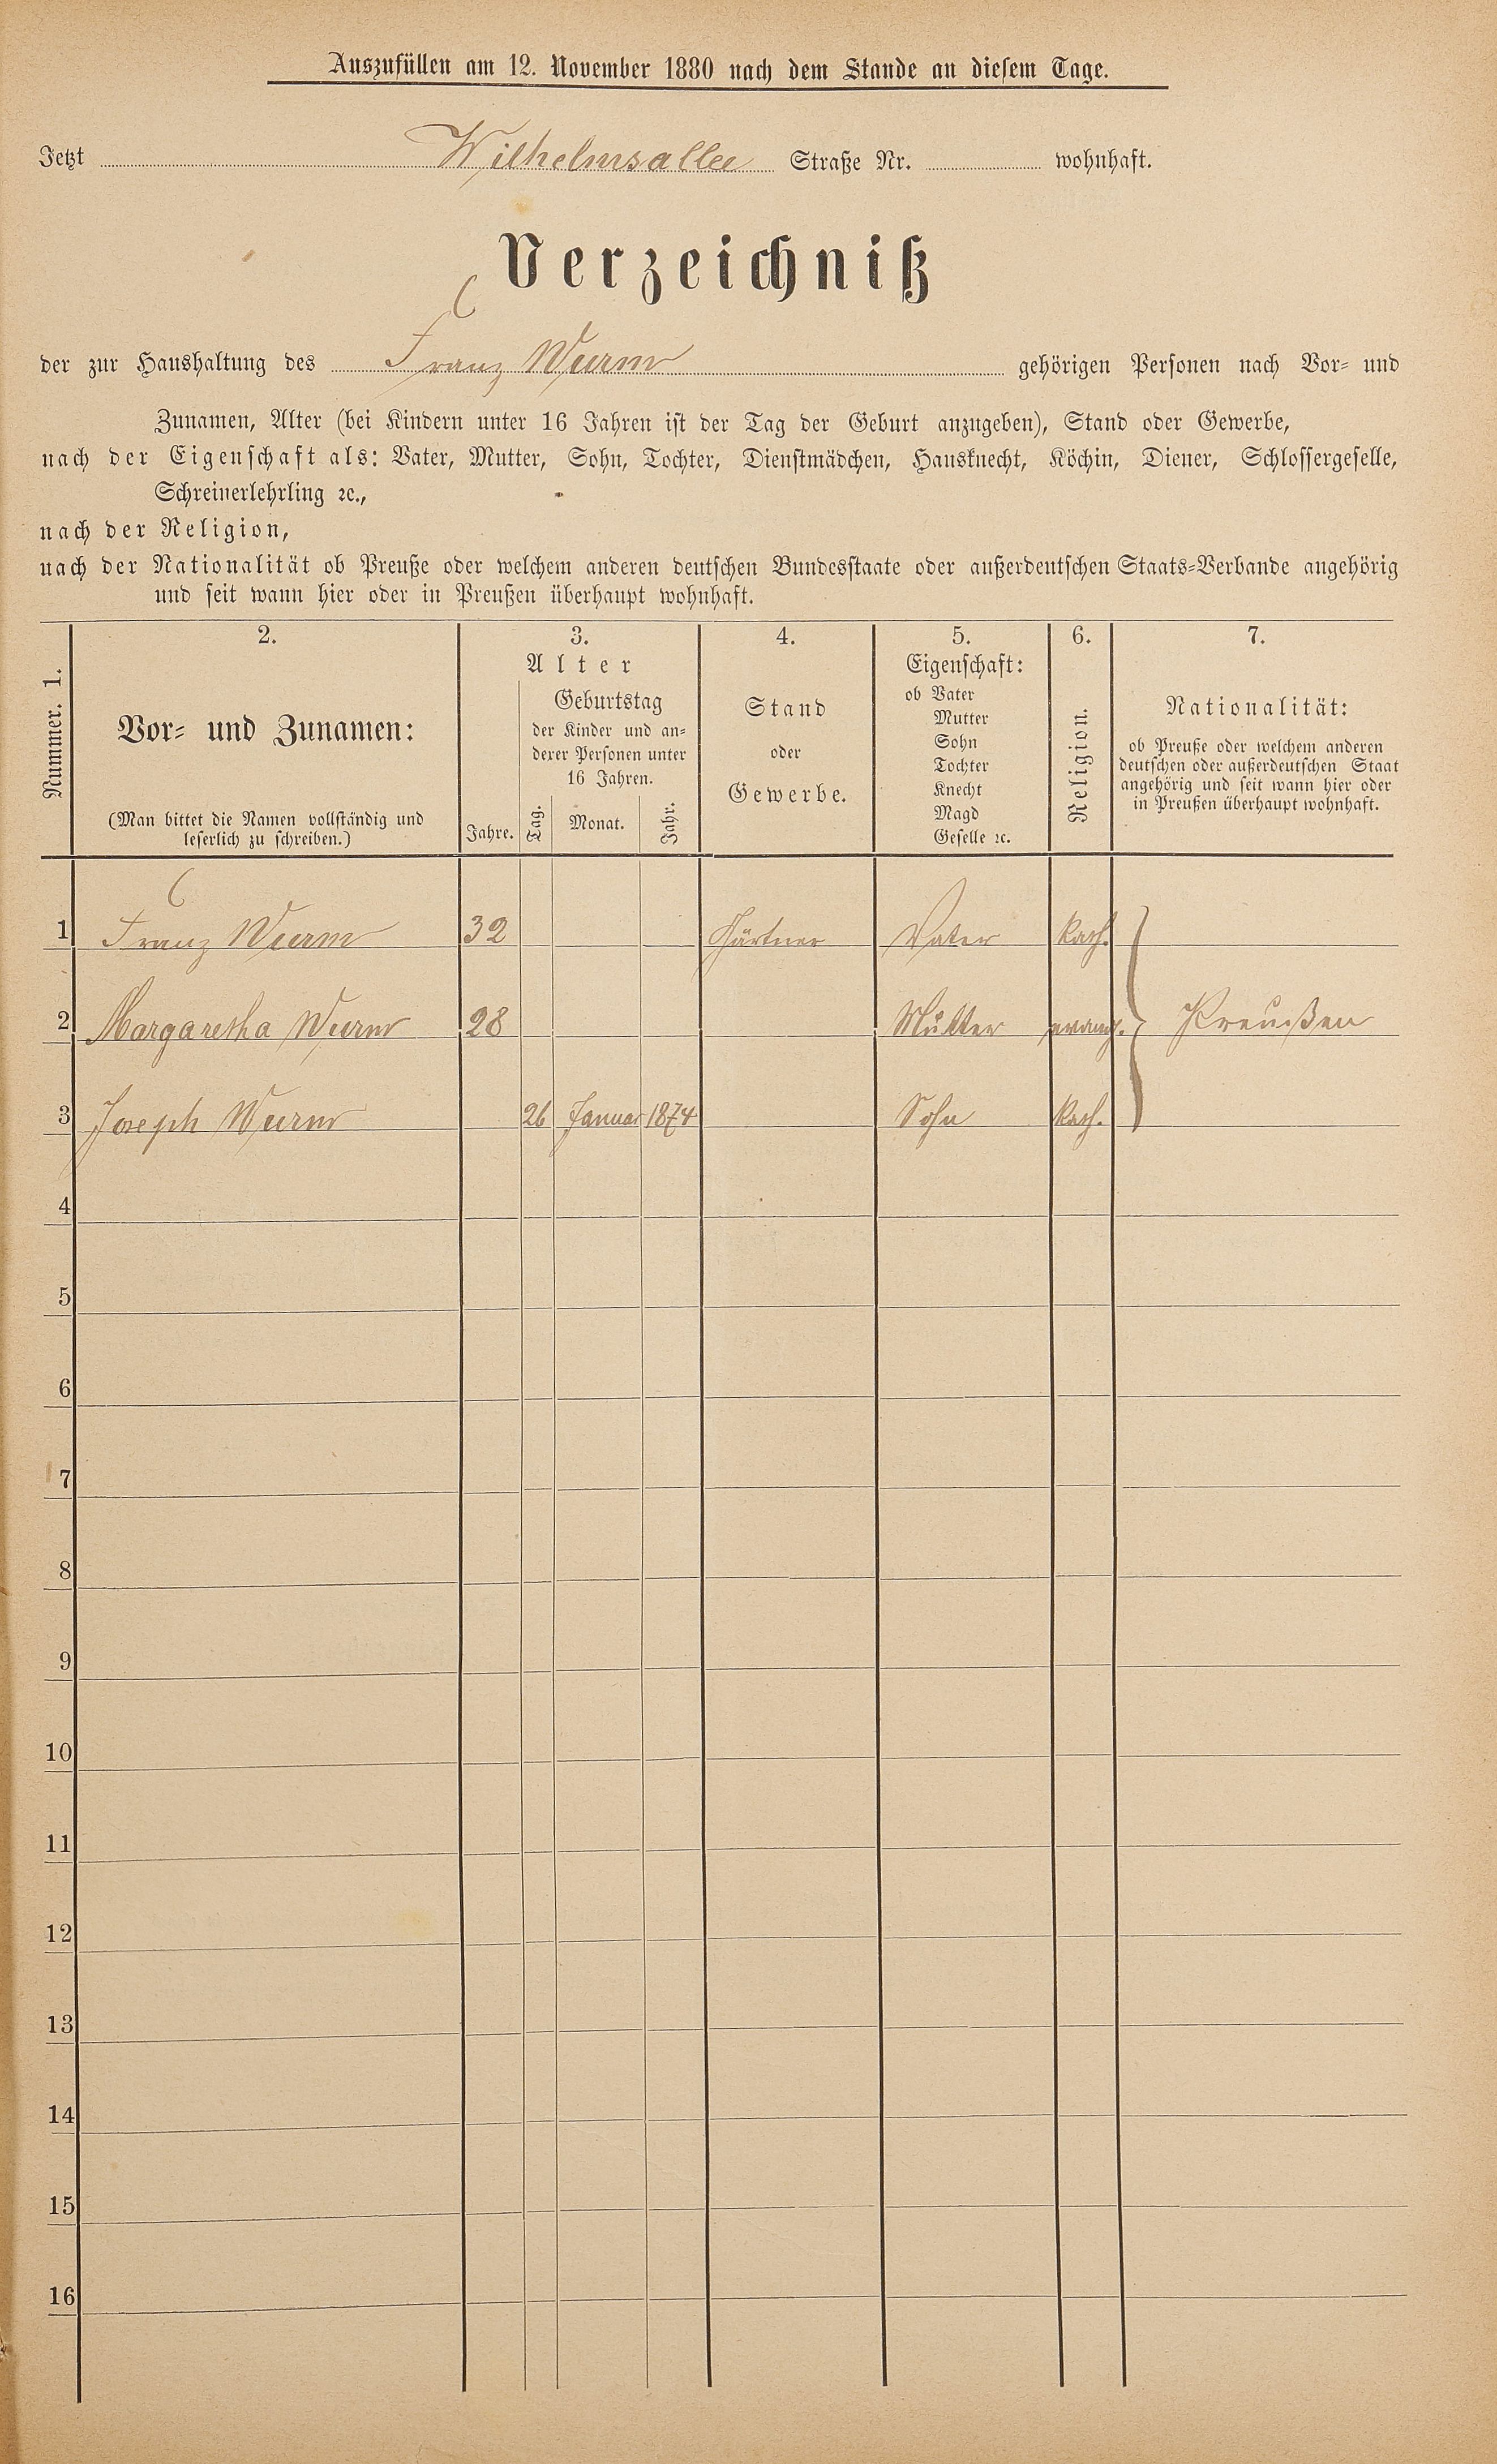 Auszufüllen am 12. November 1880 nach dem Stande an diesem Tage.
Jetzt Wilhelmsallee Straße Nr. wohnhaft.
Verzeichniß
der zur Haushaltung des Franz Wurm gehörigen Personen nach Vor- und
Zunamen, Alter (bei Kindern unter 16 Jahren ist der Tag der Geburt anzugeben), Stand oder Gewerbe,
nach der Eigenschaft als: Vater, Mutter, Sohn, Tochter, Dienstmädchen, Hausknecht, Köchin, Diener, Schlossergeselle,
Schreinerlehrling ꝛc.,
nach der Religion,
nach der Nationalität ob Preuße oder welchem anderen deutschen Bundesstaate oder außerdeutschen Staats-Verbande angehörig
und seit wann hier oder in Preußen überhaupt wohnhaft.
Nummer. 1.
2.
Vor- und Zunamen:
(Man bittet die Namen vollständig und
leserlich zu schreiben.)
3.
Alter
Jahre.
Geburtstag
der Kinder und an-
derer Personen unter
16 Jahren.
Tag. Monat. Jahr.
4.
Stand
oder
Gewerbe.
5.
Eigenschaft:
ob Vater
Mutter
Sohn
Tochter
Knecht
Magd
Geselle ꝛc.
6.
Religion.
7.
Nationalität:
ob Preuße oder welchem anderen
deutschen oder außerdeutschen Staat
angehörig und seit wann hier oder
in Preußen überhaupt wohnhaft.
1 Franz Wurm 32 Gärtner Vater kath.
2 Margaretha Wurm 28 Mutter evang. Preußen
3 Joseph Wurm 26 Januar 1874 Sohn kath.
4
5
6
7
8
9
10
11
12
13
14
15
16